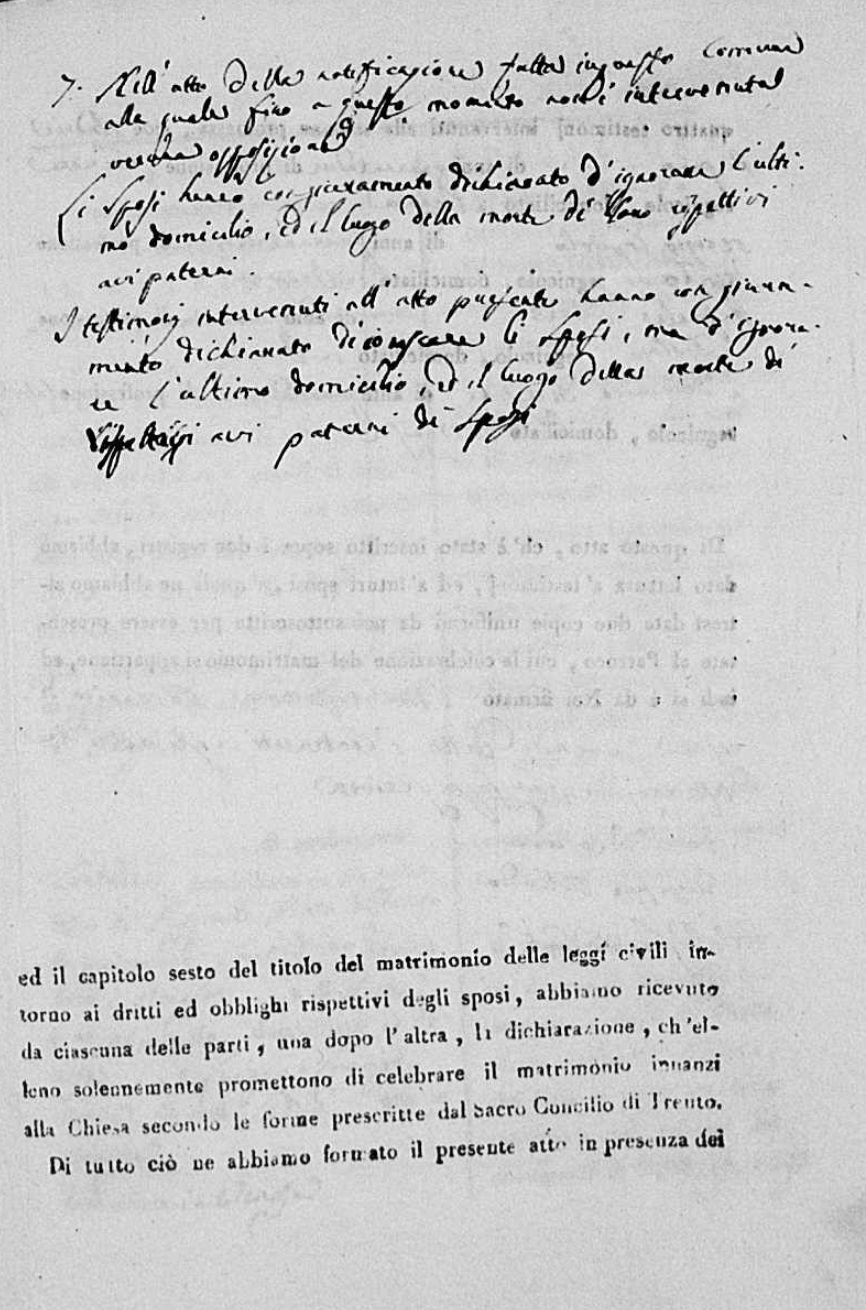 7. Nell'atto della notificazione fatta in questo Comune
alla quale fino a questo momento non è intervenuta
veruna opposizione
Li Sposi hanno con giuramento dichiarato d'ignorare l'ulti-
mo domicilio, ed il luogo della morte di loro rispettivi
avi paterni.
I testimonj intervenuti all'atto presente hanno con giura-
mento dichiarato di conoscere li Sposi, ma d'ignora-
re l'ultimo domicilio, ed il luogo della morte di
rispettivi avi paterni di Sposi
ed il capitolo sesto del titolo del matrimonio delle leggi civili in-
torno ai dritti ed obblighi rispettivi degli sposi, abbiamo ricevuto
da ciascuna delle parti, una dopo l'altra, la dichiarazione, ch'el-
leno solennemente promettono di celebrare il matrimonio innanzi
alla Chiesa secondo le forme prescritte dal Sacro Concilio di Trento.
Di tutto ciò ne abbiamo formato il presente atto in presenza dei